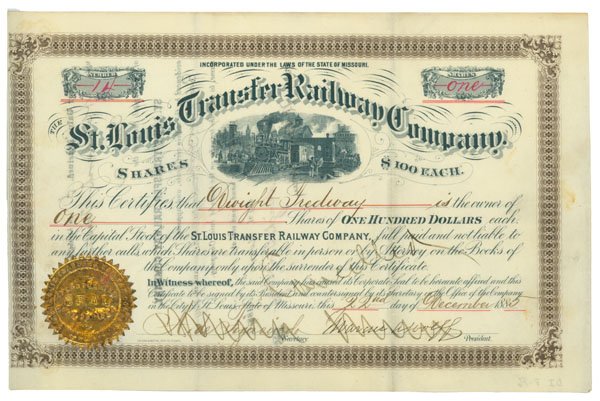 INCORPORATED UNDER THE LAWS OF THE STATE OF MISSOURI.
NUMBER
14
SHARES
one
THE
St. Louis Transfer Railway Company.
SHARES $100 EACH.
This Certifies that Dwight Tredway is the owner of
One Shares of ONE HUNDRED DOLLARS each
in the Capital Stock of the ST. LOUIS TRANSFER RAILWAY COMPANY, full paid and not liable to
any further calls, which Shares are transferable in person or by Attorney on the Books of
the company only upon the surrender of this Certificate.
In Witness whereof, the said Company has caused its Corporate seal to be hereunto affixed and this
Certificate to be signed by its President and countersigned by its Secretary at the Office of the Company
in the City of St. Louis, State of Missouri, this day of December 1885
Secretary President.